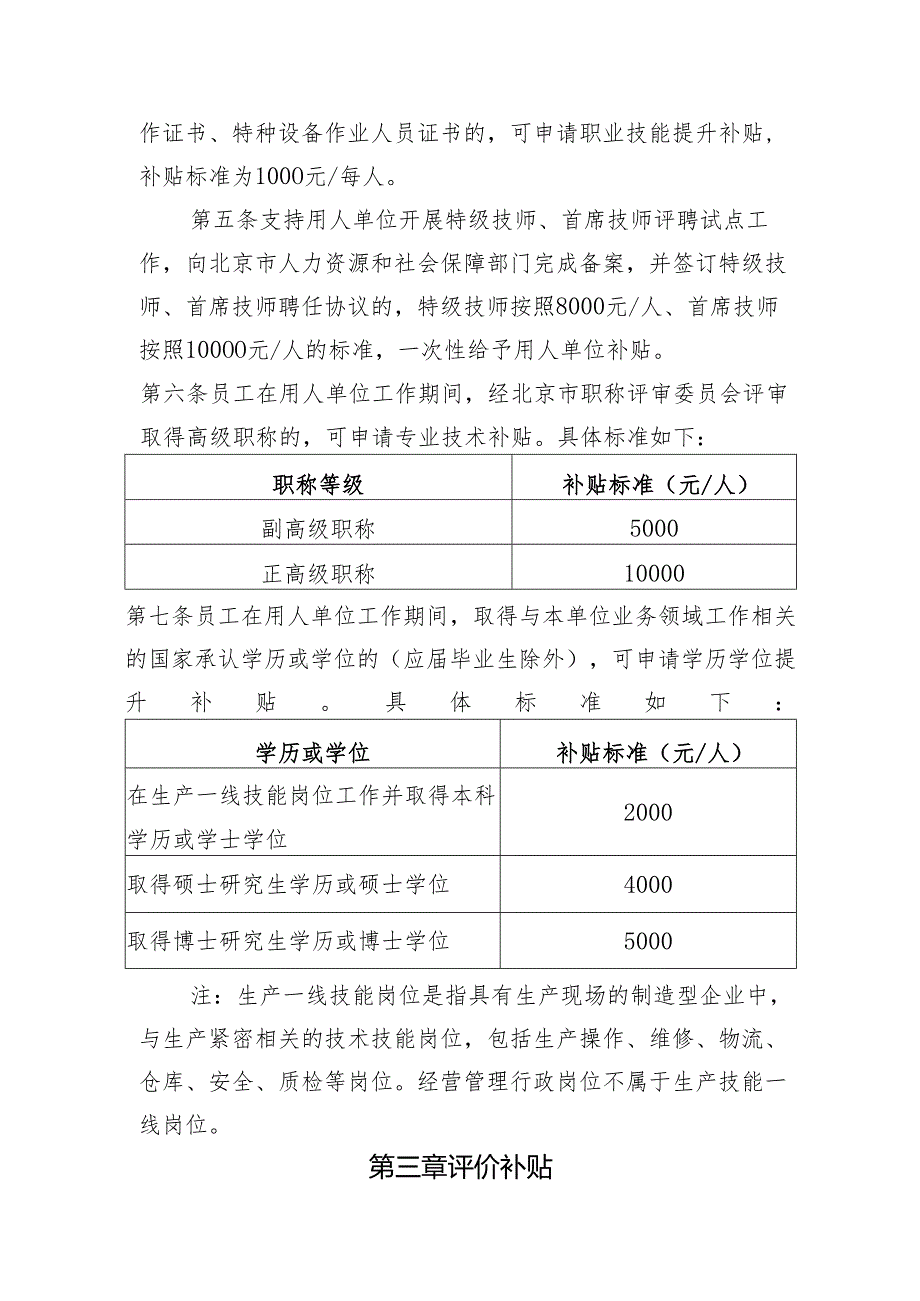 作证书、特种设备作业人员证书的，可申请职业技能提升补贴，
补贴标准为1000元/每人。
第五条支持用人单位开展特级技师、首席技师评聘试点工
作，向北京市人力资源和社会保障部门完成备案，并签订特级技
师、首席技师聘任协议的，特级技师按照8000元/人、首席技师
按照10000元/人的标准，一次性给予用人单位补贴。
第六条员工在用人单位工作期间，经北京市职称评审委员会评审
取得高级职称的，可申请专业技术补贴。具体标准如下：
职称等级 补贴标准（元/人）
副高级职称 5000
正高级职称 10000
第七条员工在用人单位工作期间，取得与本单位业务领域工作相关
的国家承认学历或学位的（应届毕业生除外），可申请学历学位提
升补贴。具体标准如下：
学历或学位 补贴标准（元/人）
在生产一线技能岗位工作并取得本科
学历或学士学位 2000
取得硕士研究生学历或硕士学位 4000
取得博士研究生学历或博士学位 5000
注：生产一线技能岗位是指具有生产现场的制造型企业中，
与生产紧密相关的技术技能岗位，包括生产操作、维修、物流、
仓库、安全、质检等岗位。经营管理行政岗位不属于生产技能一
线岗位。
第三章评价补贴